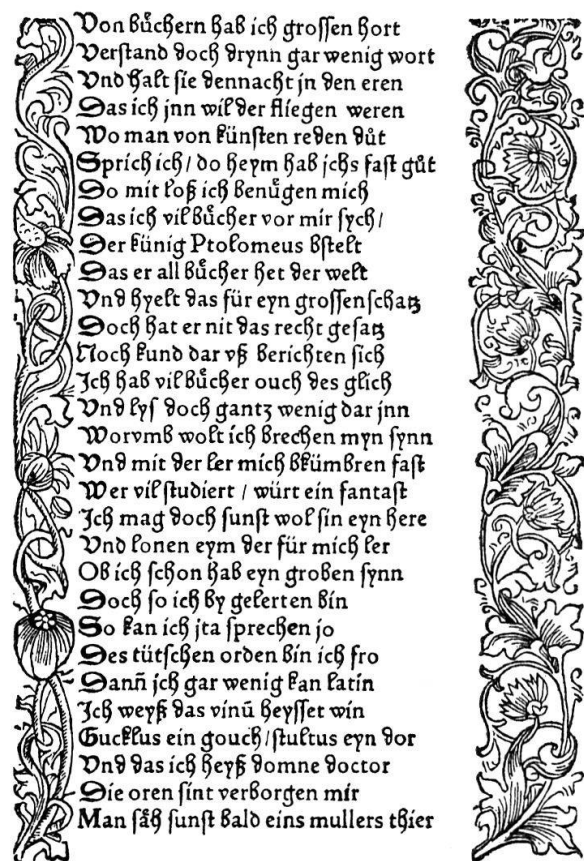 Von buͤchern hab ich grossen hort
Verstand doch drynn gar wenig wort
Vnd halt sie dennacht jn den eren
Das ich jnn wil der fliegen weren
Wo man von künsten reden duͦt
Sprich ich / do heym hab jchs fast guͦt
Do mit loß ich benuͤgen mich
Das ich vil buͤcher vor mir sych /
Der künig Ptolomeus bstelt
Das er all buͤcher het der welt
Vnd hyelt das für eyn grossen schatz
Doch hat er nit das recht gesatz
Noch kund dar vß berichten sich
Jch hab vil buͤcher ouch des glich
Vnd lys doch gantz wenig dar jnn
Worvmb wolt ich brechen myn synn
Vnd mit der ler mich bkümbren fast
Wer vil studiert / würt ein fantast
Jch mag doch sunst wol sin eyn here
Vnd lonen eym der für mich ler
Ob ich schon hab eyn groben synn
Doch so ich by gelerten bin
So kan ich jta sprechen jo
Des tütschen orden bin ich fro
Dann̄ jch gar wenig kan latin
Jch weyß das vinū heysset win
Gucklus ein gouch / stultus eyn dor
Vnd das ich heyß domne doctor
Die oren sint verborgen mir
Man saͤh sunst bald eins mullers thier